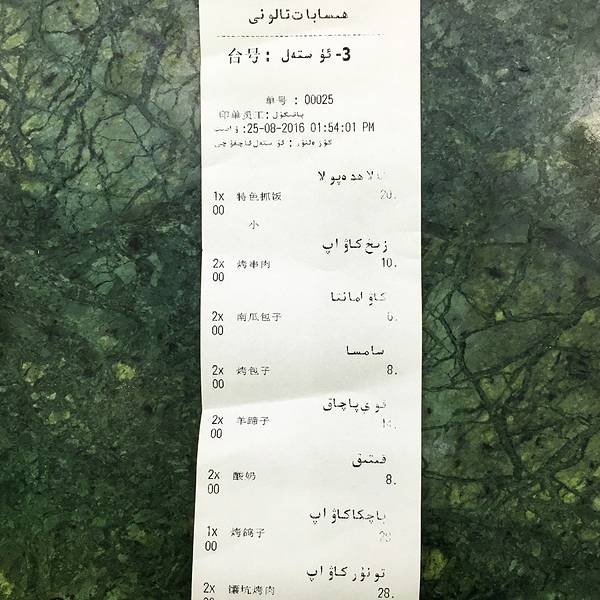 ھىسابات تالونى
台号 : ئۈستەل -3
单号 : 00025
印单员工:
:25-08-2016 01:54:01 PM
پولا
1x 特色抓饭 20.
00
小
زىخ كاۋاپ
2x 烤串肉 10.
00
كاۋا مانتا
2x 南瓜包子 6.
00
سامسا
2x 烤包子 8.
00
قوي پاچاق
2x 羊蹄子 14.
00
قېتىق
2x 酸奶 8.
00
باچكا كاۋاپ
1x 烤鸽子
00
تونۇر كاۋاپ
2x 馕坑烤肉 28.